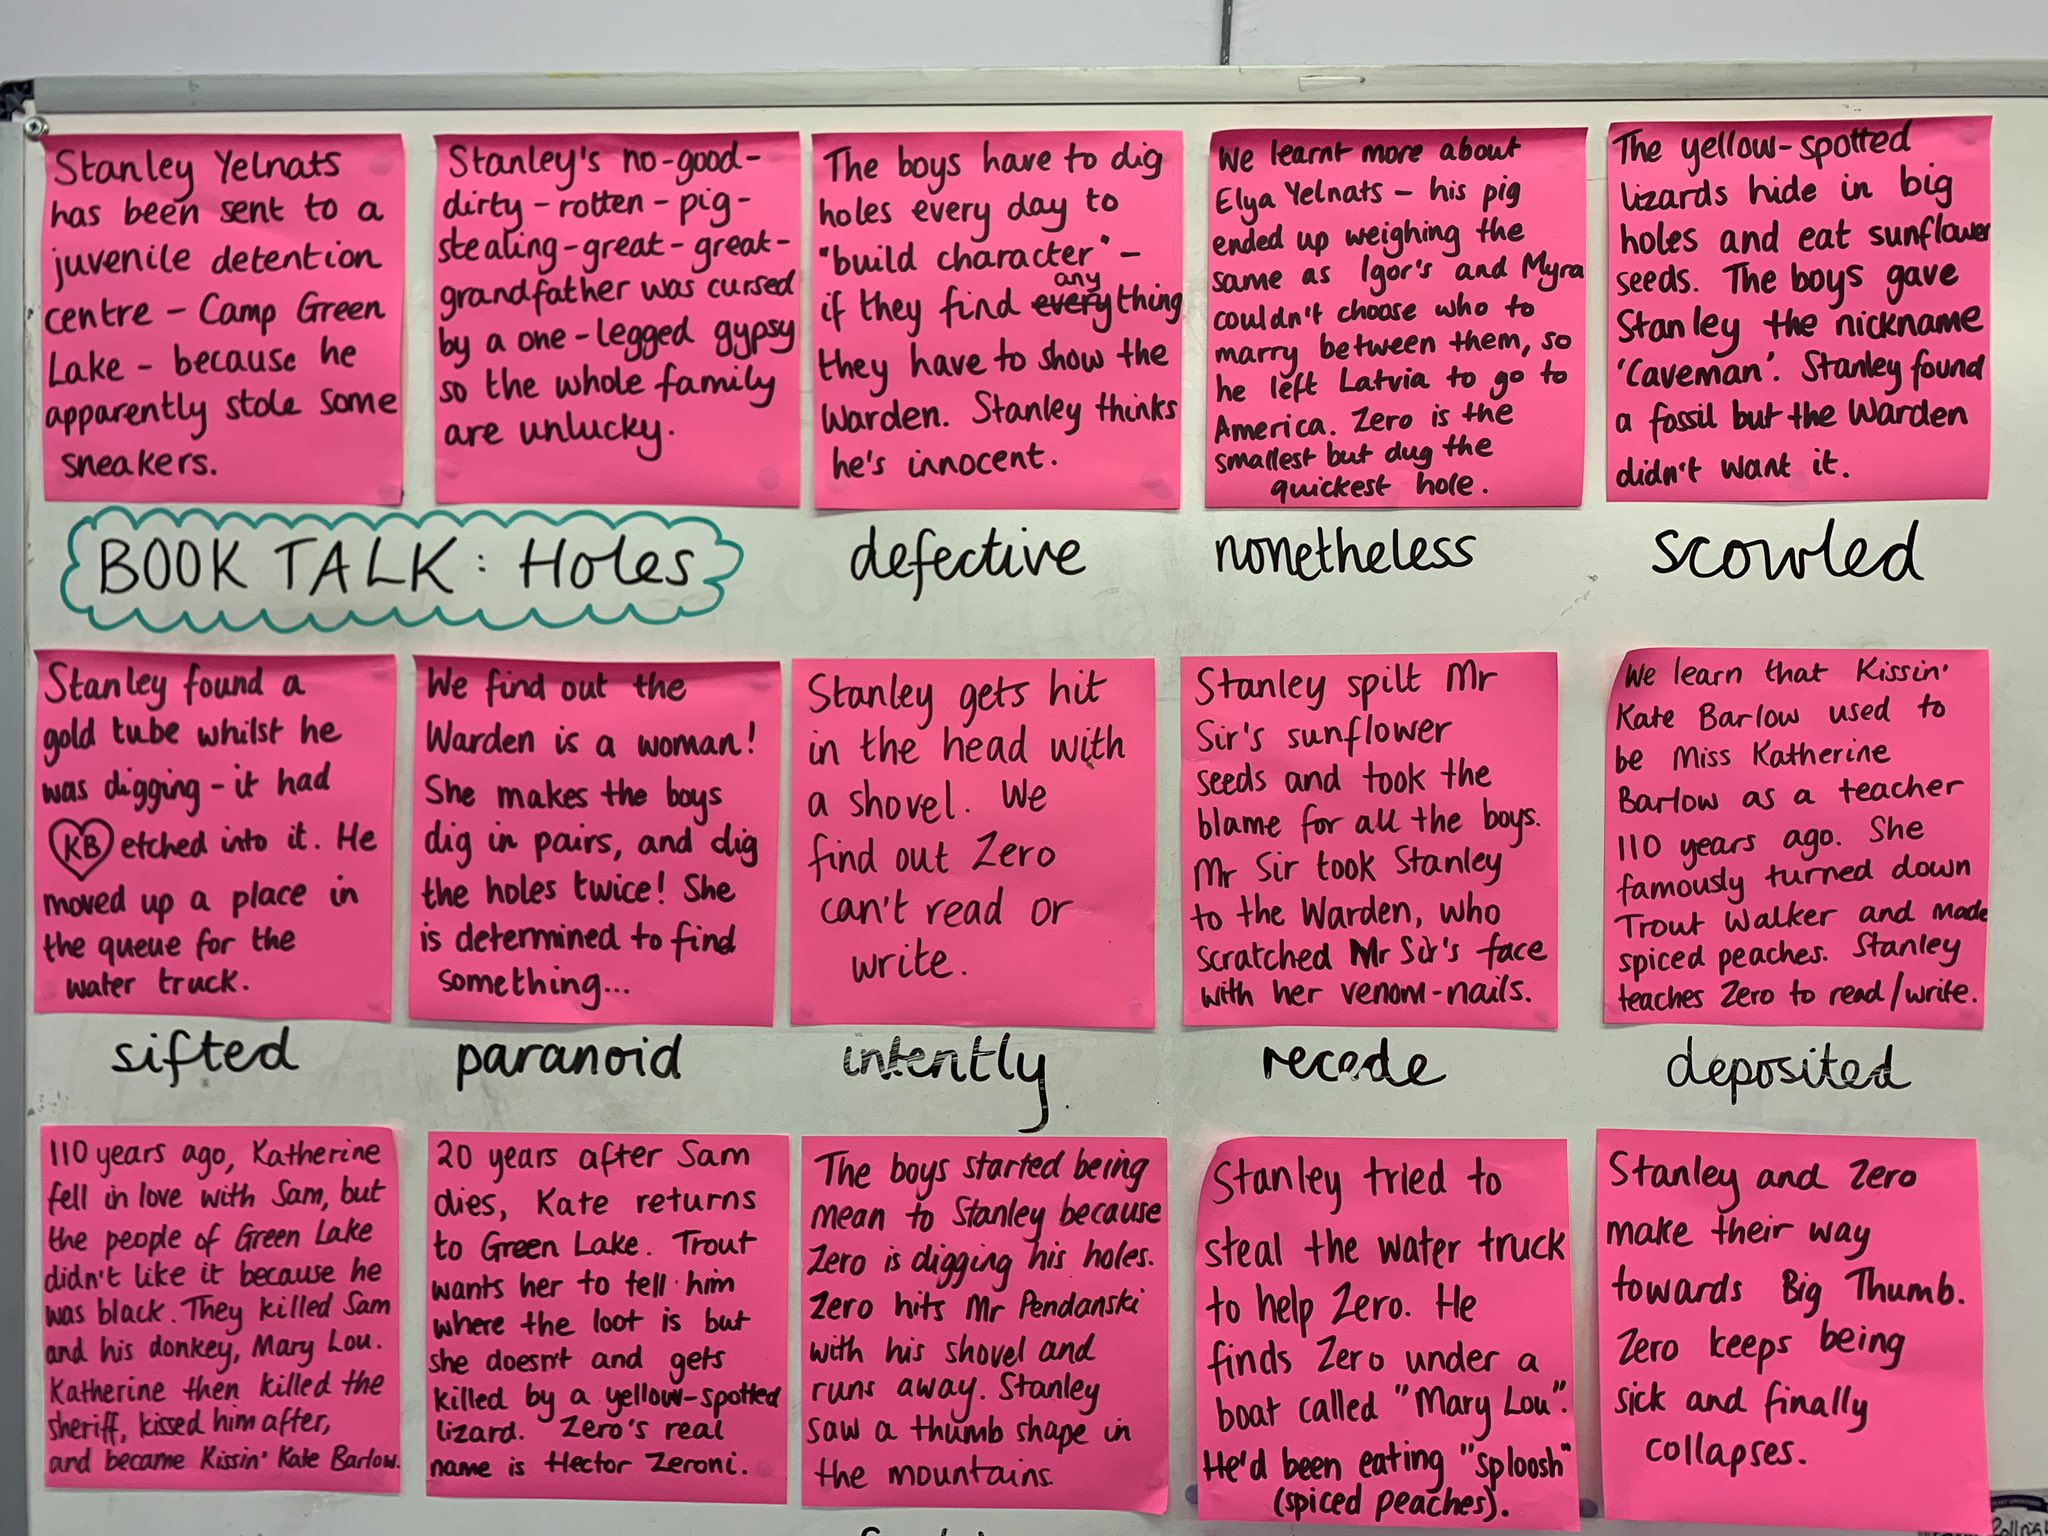 Stanley Yelnats
has been sent to a
juvenile detention
centre - Camp Green
Lake - because he
apparently stole some
sneakers.
Stanley's no-good-
dirty-rotten-pig-
stealing-great-great-
grandfather was cursed
by a one-legged gypsy
so the whole family
are unlucky.
The boys have to dig
holes every day to
"build character" -
any
if they find everything
they have to show the
Warden. Stanley thinks
he's innocent.
We learnt more about
Elya Yelnats - his pig
ended up weighing the
same as Igor's and Myra
couldn't choose who to
marry between them, so
he left Latvia to go to
America. Zero is the
smallest but dug the
quickest hole.
The yellow-spotted
lizards hide in big
holes and eat sunflower
seeds. The boys gave
Stanley the nickname
'Caveman'. Stanley found
a fossil but the Warden
didn't want it.
BOOK TALK: Holes
defective
nonetheless
scowled
Stanley found a
gold tube whilst he
was digging - it had
KB etched into it. He
moved up a place in
the queue for the
water truck.
We find out the
Warden is a woman!
She makes the boys
dig in pairs, and dig
the holes twice! She
is determined to find
something...
Stanley gets hit
in the head with
a shovel. We
find out Zero
can't read or
write.
Stanley spilt Mr
Sir's sunflower
seeds and took the
blame for all the boys.
Mr Sir took Stanley
to the Warden, who
scratched Mr Sir's face
with her venom-nails.
We learn that Kissin'
Kate Barlow used to
be Miss Katherine
Barlow as a teacher
110 years ago. She
famously turned down
Trout Walker and made
spiced peaches. Stanley
teaches Zero to read/write.
sifted
paranoid
intently
recede
deposited
110 years ago, Katherine
fell in love with Sam, but
the people of Green Lake
didn't like it because he
was black. They killed Sam
and his donkey, Mary Lou.
Katherine then killed the
sheriff, kissed him after,
and became Kissin' Kate Barlow.
20 years after Sam
dies, Kate returns
to Green Lake. Trout
wants her to tell him
where the loot is but
she doesn't and gets
killed by a yellow-spotted
lizard. Zero's real
name is Hector Zeroni.
The boys started being
mean to Stanley because
Zero is digging his holes.
Zero hits Mr Pendanski
with his shovel and
runs away. Stanley
saw a thumb shape in
the mountains.
Stanley tried to
steal the water truck
to help Zero. He
finds Zero under a
boat called "Mary Lou".
He'd been eating "sploosh"
(spiced peaches).
Stanley and Zero
make their way
towards Big Thumb.
Zero keeps being
sick and finally
collapses.